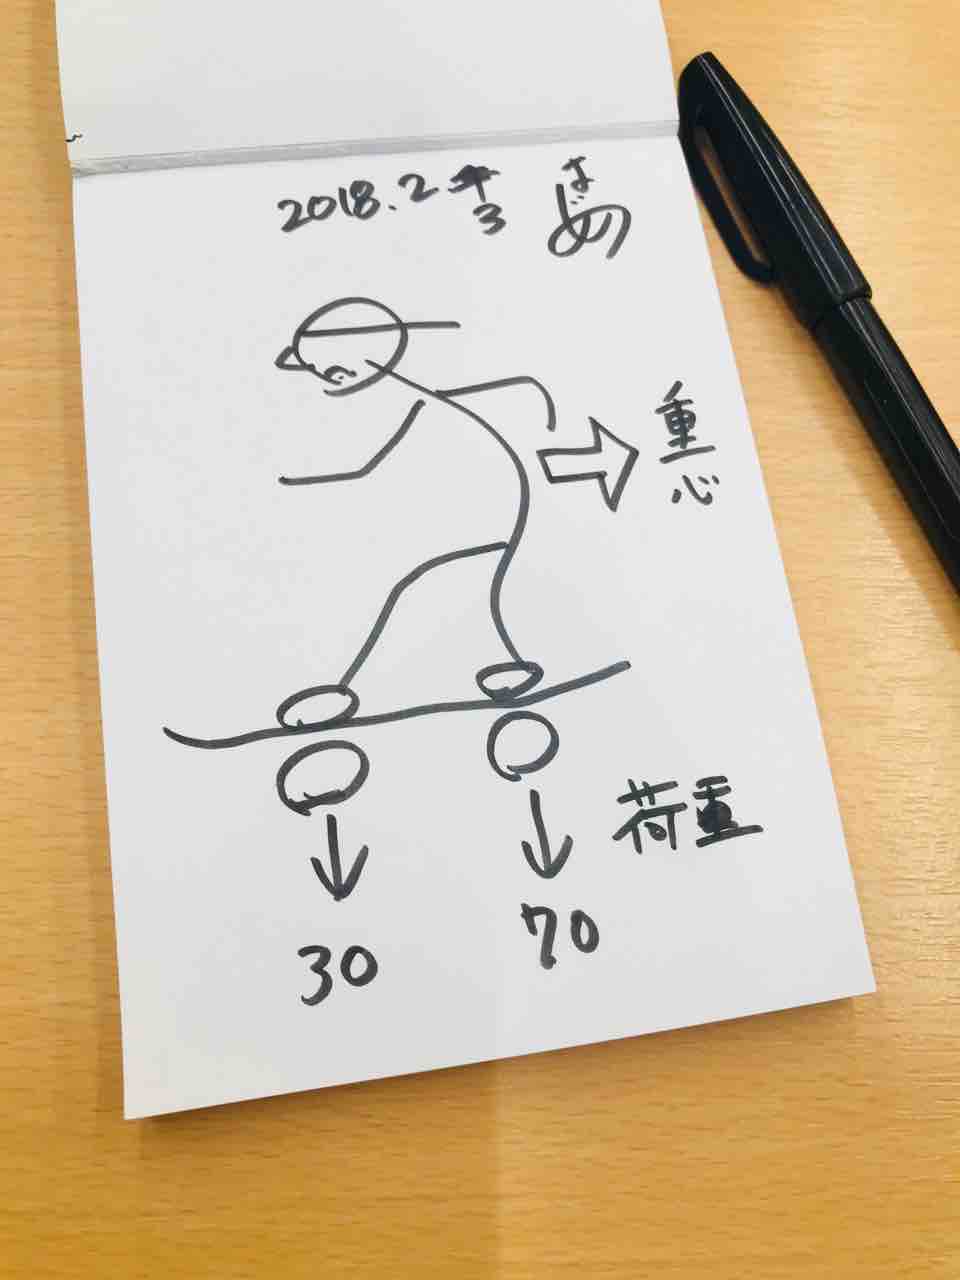 2018.2.3
はじめ
重心
荷重
30
70